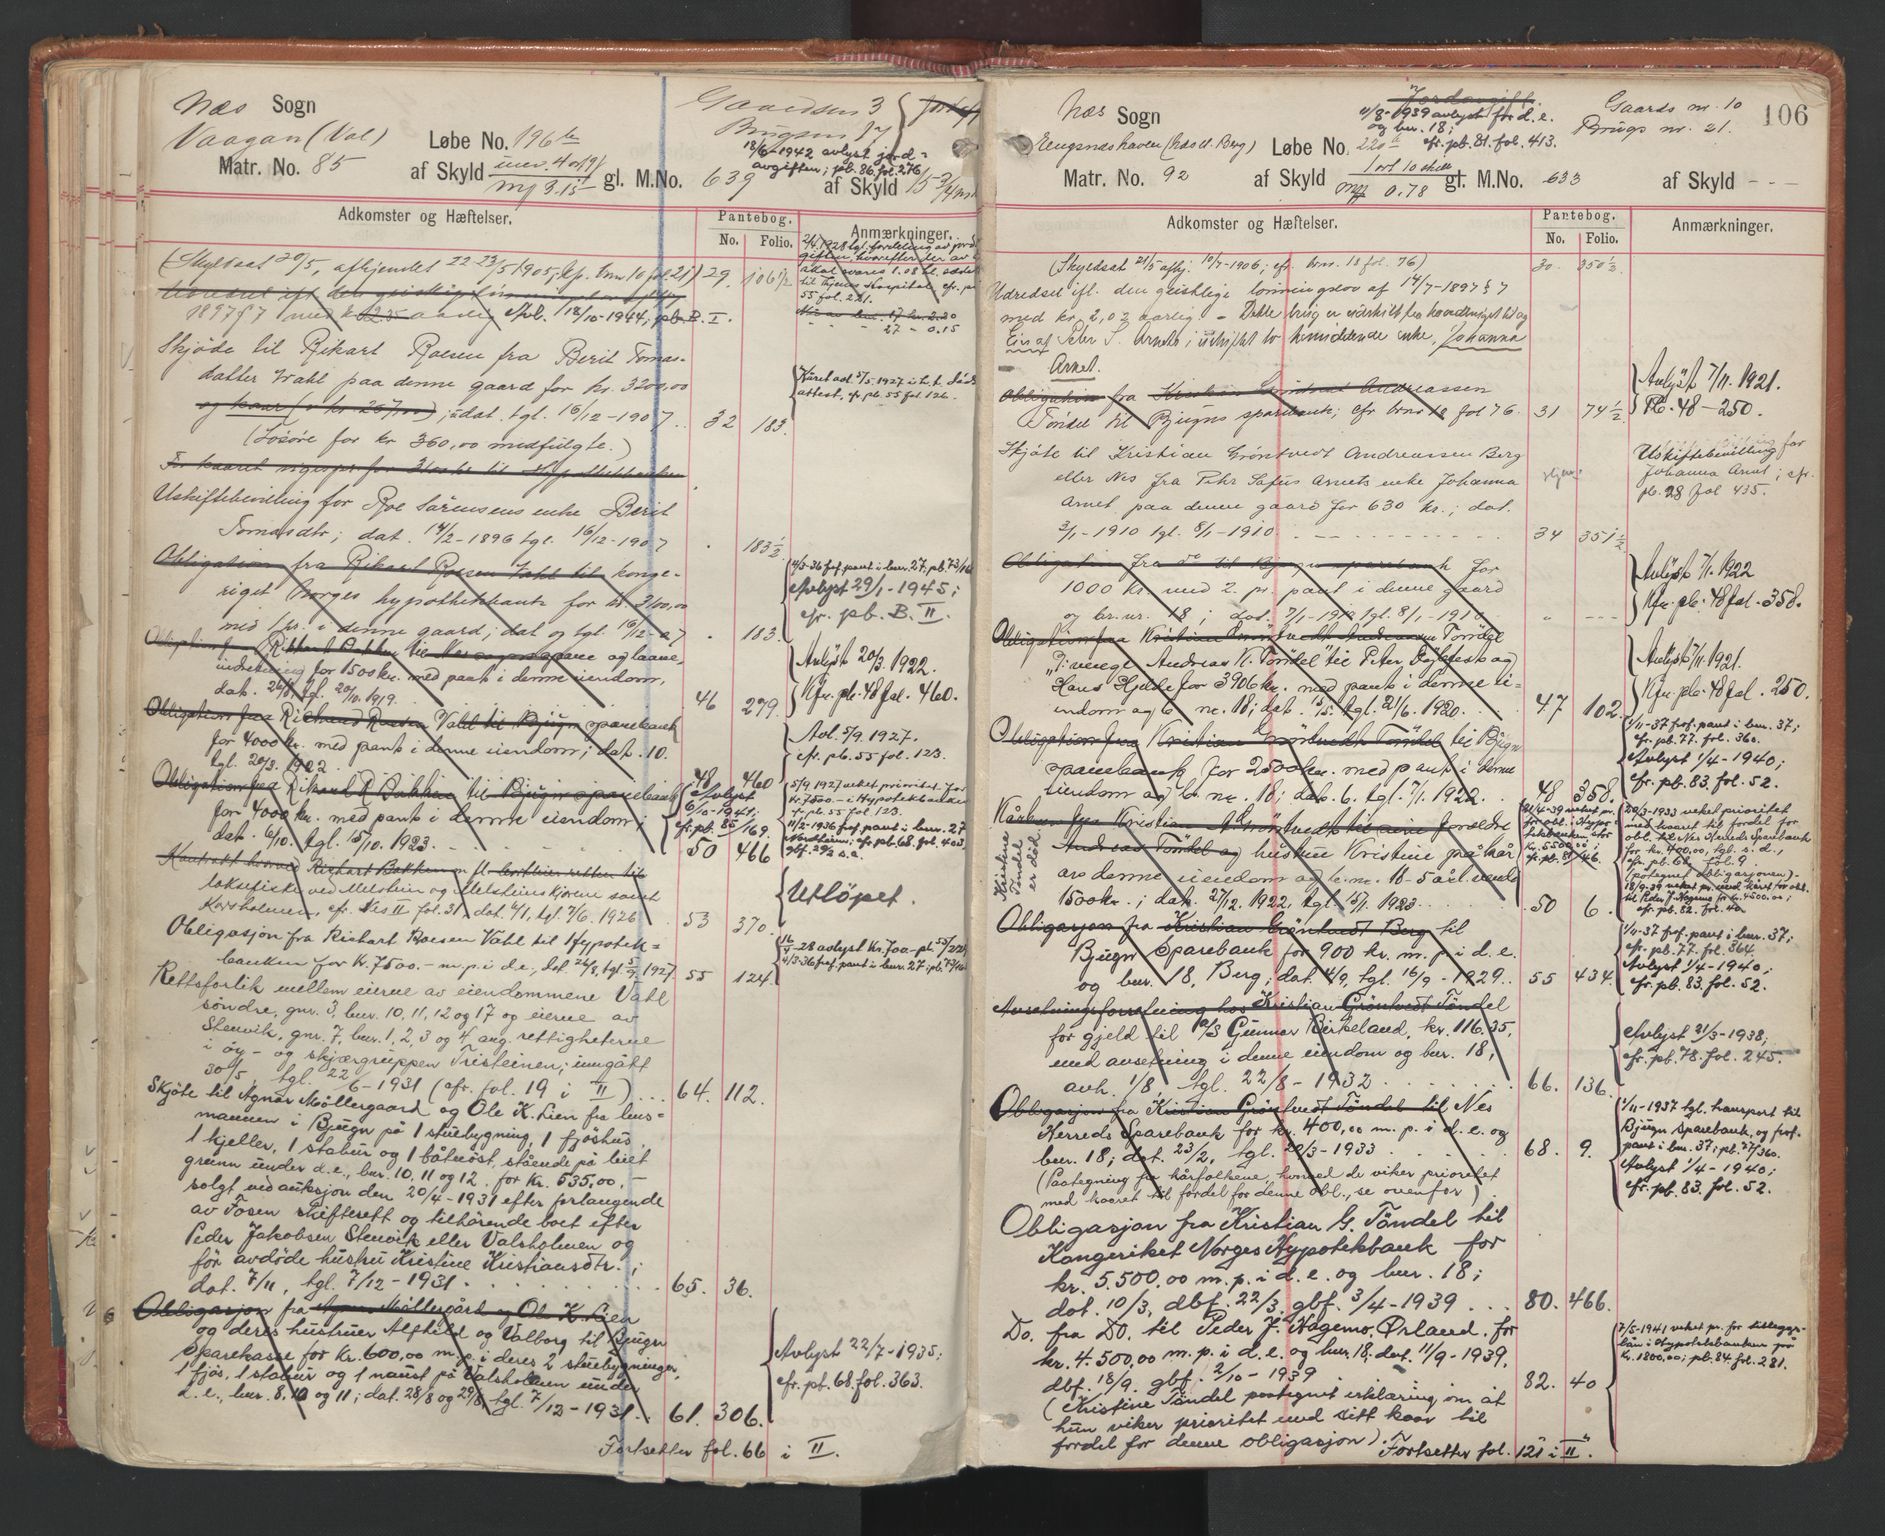 Næs Sogn
Vaagan (Val)
Løbe No. 196
Matr. No. 85
af Skyld
mp 3.15
gl. M.No. 639
af Skyld
Gaardsnr 3
Brugsnr 17
18/6-1942 avlyst jord-
avgiften; pb. 86. fol. 276
Adkomster og Hæftelser.
Pantebog.
No. Folio.
Anmærkninger.
(Skyldsat 20/5, afhjemlet 22-23/5 1905; 29. 106 1/2
1897 § 7 med kr. 2.35 aarlig Avl. 18/10-1944, pb. B. I.
Skjøde til Rikart Roesen fra Berit Tomas-
datter Wahl paa denne gaard for kr. 3200,00
og kaar ; dat. tgl. 16/12-1907. 32 183.
(Løsøre for kr 360,00 medfulgte.)
Uskiftebevilling for Roe Sørensens enke Berit
Tomasdtr; dat. 14/2-1896 tgl. 16/12-1907 183 1/2
Kåret avl. 5/5. 1927 i h. t. døds-
attest, cfr. pb. 55 fol. 126.
Obligation fra Rikart Roesen Vahl til konge-
riget Norges hypothekbank for kr. 2100,00
med 1 pr. i denne gaard; dat og tgl. 16/12-07 183.
Avlyst 29/1-1945;
cfr. pb. B. II.
Obligation fra Rikhart Bakken til Nes og laane-
indretning for 1500 kr. med pant i denne eiendom,
dat. 26/8, tgl. 20/10. 1919. 46 279.
Avlyst 20/3. 1922.
Kfr. pb. 48 fol. 460.
Obligation fra Richard Roesen Vahl til Bjugn sparebank
for 4000 kr. med pant i denne eiendom; dat. 10.
tgl. 20/3. 1922. 48 460
Avl. 5/9. 1927.
cfr. pb. 55 fol. 123.
Obligation fra Rikard R. Bakken til Bjugn sparebank
for 4000 kr. med pant i denne eiendom;
dat. 6/10. tgl. 15/10. 1923. 50 466
Avlyst
6/10-1941;
cfr. pb. 85
/169.
5/9 1927 veket prioritet for
kr. 7500.- i Hypotekbanken
cfr. pb. 55 fol 123.
11/2-1936 frf. pant i bnr. 27
Kontrakt hvorved Richart Bakken m. fl. bortleier retten til
laksefiske ved Melstein og Melsteinskjærene samt
Karsholmen, cfr. Nes II fol. 31. dat. 4/1, tgl. 7/6. 1926 53 370.
Utløpet.
Obligasjon fra Richart Roesen Vahl til Hypotek-
banken for Kr. 7500.- m.p. i d.e., dat. 26/8, tgl. 5/9. 1927 55 124
Rettsforlik mellem eierne av eiendommene Vahl
søndre, gnr. 3, bnr. 10, 11, 12 og 17 og eierne av
Stenvik, gnr. 7, bnr. 1, 2, 3 og 4 ang. rettigheterne
i øy- og skjærgruppen Tristeinen; inngått
30/5, tgl. 22/6-1931 (cfr. fol. 19 i II) ... 64. 112.
Skjøte til Agnar Møllergaard og Ole K. Lien fra lens-
mannen i Bjugn på 1 stuebygning, 1 fjøshus,
1 kjeller, 1 stabur og 1 båtnøst, stående på leiet
grunn under d.e., bnr. 10, 11 og 12. for kr. 535,00,-
solgt ved auksjon den 20/4-1931 efter forlangende
av Fosen skifterett og tilhørende boet efter
Peder Jakobsen Stenvik eller Valsholmen og
før avdøde hustru Kristine Kristiansdtr.;
dat. 7/11, tgl. 7/12-1931. 65. 36.
Obligasjon fra Agnar Møllergård og Ole K. Lien
og deres hustruer Alfhild og Valborg til Bjugn
Sparekasse for kr. 600,00 m.p. i deres 2 stuebygninger,
1 fjøs, 1 stabur og 1 naust på Valsholmen under
d.e., bnr. 8, 10 og 11; dat. 28/8 og 29/8, tgl. 7/12-1931. 61. 306.
Avlyst 22/7-1935;
cfr. pb. 68. fol. 363.
Fortsetter fol. 66 i II.
106
Næs Sogn
Matr. No. 92
Løbe No. 220
af Skyld
mp 0.78
gl. M.No. 633
af Skyld - - -
Jordavgift
11/8-1939 avlyst for d.e.
og bnr. 18;
cfr. pb. 81. fol. 413.
Gaards nr. 10
Brugs nr. 21.
Adkomster og Hæftelser.
Pantebog.
No. Folio.
Anmærkninger.
(Skyldsat 21/5 afhj. 10/7-1906; cfr. brnr. 18 fol. 76) 30. 350 1/2.
Udredsel ifl. den geistlige lønningslov af 14/7-1897 § 7
med kr. 2,02 aarlig.
Eies af Peter S. Arnets i uskiftet bo hensiddende enke, Johanna
Arnet.
Obligation fra Kristian Grøntvedt Andreassen
Tøndel til Bjugns sparebank; cfr brnr 18 fol 76. 31 74 1/2
Avlyst 7/11. 1921.
Pb. 48-250.
Skjøte til Kristian Grøntvedt Andreassen Berg
eller Nes fra Pehr Sofus Arnets enke Johanna
Arnet paa denne gaard for 630 kr.; dat.
3/1-1910 tgl. 8/1-1910. 34 351 1/2
Uskiftebevilling for
Johanna Arnet; cfr.
pb. 28 fol 435.
Obligation fra do til Bjugn sparebank for
1000 kr. med 2. pr. pant i denne gaard
og br.nr. 18; dat. 7/1-1910 tgl. 8/1-1910
Avlyst 7/1. 1922
Kfr. pb. 48 fol. 358.
Obligation fra Kristian Grøntvedt Andreassen Tøndel
Andreas K. Tøndel til Peter Døhlfest og
Hans Hjelde for 3906 kr. med pant i denne ei-
endom og b. nr. 18; dat. 15/5. tgl. 21/6. 1920. 47 102.
Avlyst 7/11. 1921.
Kfr. pb. 48 fol. 250.
Obligation fra Kristian Grøntvedt Tøndel til Bjugn
sparebank for 2500 kr. med pant i denne
eiendom og b. nr. 18; dat. 6. tgl. 7/1. 1922. 48 358.
1/11-37 frf. pant i bnr. 37;
cfr. pb. 77. fol. 360.
Avlyst 1/4-1940;
cfr. pb. 83. fol. 52.
Kårbrev fra Kristian A. Grøntvedt til sine forældre
Andreas Tøndel og hustru Kristine på kår
av denne eiendom og b. nr. 18 - 5 års verdi
1500 kr.; dat. 27/12. 1922, tgl. 15/1. 1923. 50 6.
Kristine
Tøndel
er död.
20/3-1933 veket prioritet
med kaaret til fordel for
obl. til Nes Herreds Sparebank
for kr. 400,00, tgl. s.d.,
cfr. pb. 68. fol. 9.
(påtegnet obligasjonen)-
18/9-39 veket pr. med kåret for obl.
til Peder J. Hagemo for kr. 4500.00;
cfr. pb. 82. fol. 40
Obligasjon fra Kristian Grøntvedt Berg til
Bjugn Sparebank for 900 kr. m. p. i d.e.
og bnr. 18, Berg; dat. 4/9, tgl. 16/9-1929. 55 434.
1/11-37 frf. pant i bnr. 37;
cfr. pb. 77. fol. 364.
Avlyst 1/4-1940;
cfr. pb. 83. fol. 52.
Avsetningsforretning hos Kristian Grøntvedt Tøndel
for gjeld til A/S Gunnar Birkeland, kr. 116,35,
med avsetning i denne eiendom og bnr. 18,
avh. 1/8, tgl. 22/8-1932. 66. 136.
Avlyst 21/3-1938;
cfr. pb. 78. fol. 245.
Obligasjon fra Kristian Grøntvedt Tøndel til Nes
Herreds Sparebank for kr. 400,00 m. p. i d.e. og
bnr. 18; dat. 23/2, tgl. 20/3-1933 68. 9.
(Paategning fra kårfolkene, hvorved de viker prioritet
med kaaret til fordel for denne obl., se ovenfor)
1/11-1937 tgl. transport til
Bjugn Sparebank, og frf.
pant i bnr. 37; pb. 77/360.
Avlyst 1/4-1940;
cfr. pb. 83. fol. 52.
Obligasjon fra Kristian G. Tøndel til
Kongeriket Norges Hypotekbank for
kr. 5.500,00 m. p. i d. e. og bnr. 18;
dat. 10/3, dbf. 22/3, gbf. 3/4-1939 ... 80. 466.
Do. fra Do. til Peder J. Hagemo, Ørland, for
kr. 4.500,00 m. p. i d.e. og bnr. 18; dat. 11/9-1939,
dbf. 18/9. gbf. 2/10-1939 82. 40
(Kristine Tøndel påtegnet erklæring om at
hun viker prioritet med sitt kaar til
fordel for denne obligasjon).
7/5-1941 veket pr. for tilleggs-
lån i Hypotekbanken på
kr. 1800,00; pb. 84. fol. 281.
Fortsetter fol. 121 i "II".